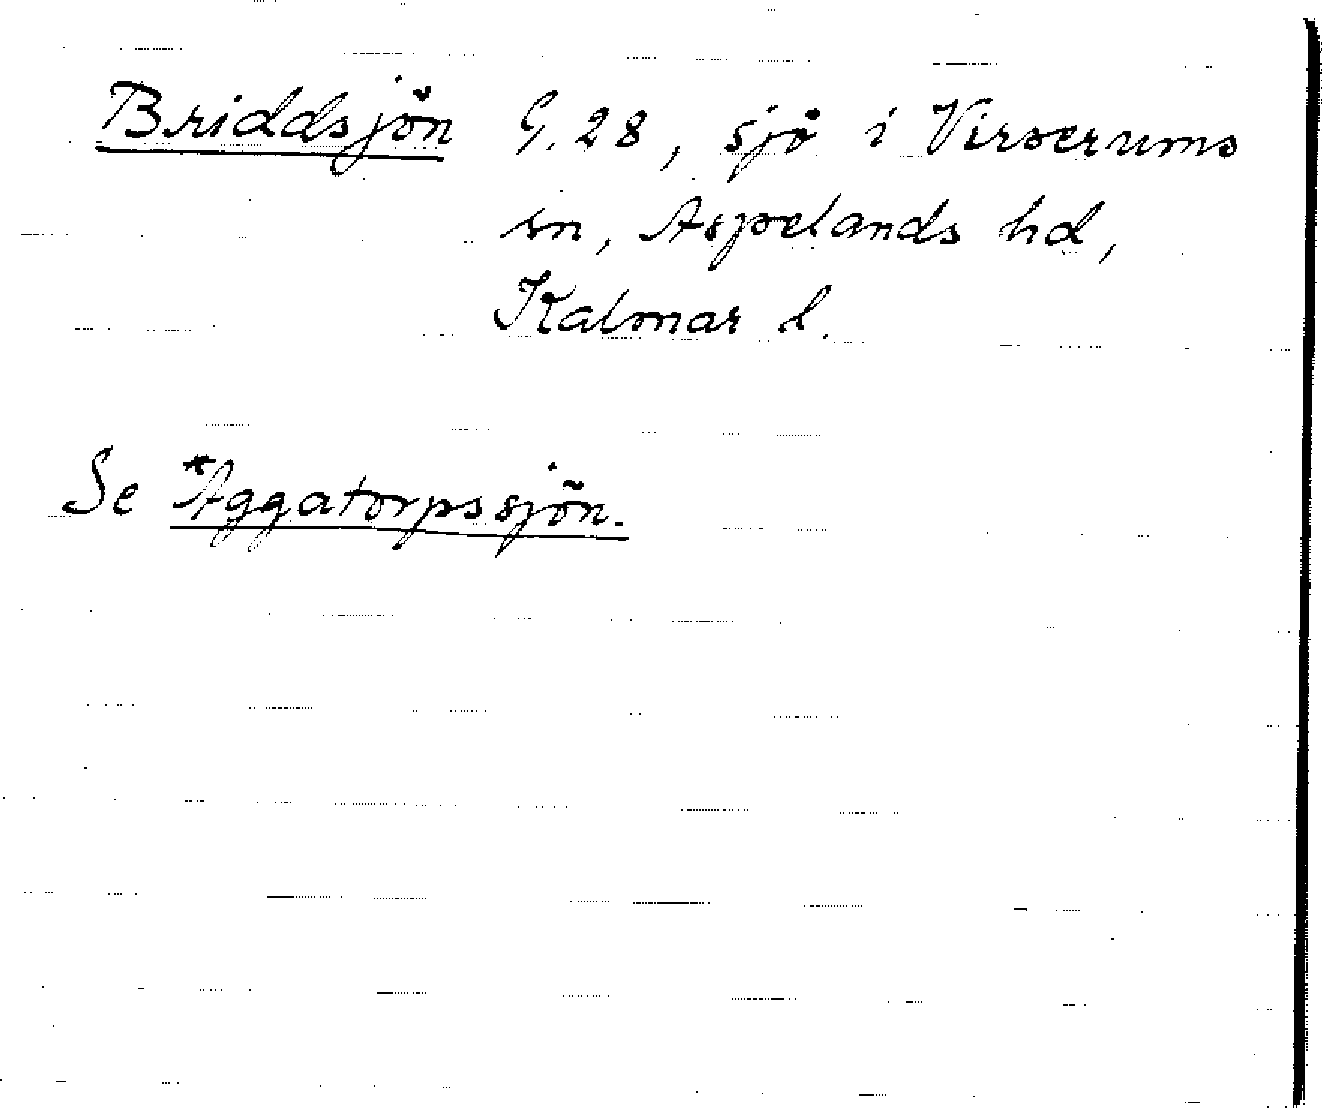 Briddsjön G.28, sjö i Virserums
sn, Aspelands hd,
Kalmar l.
Se *Aggatorpssjön.